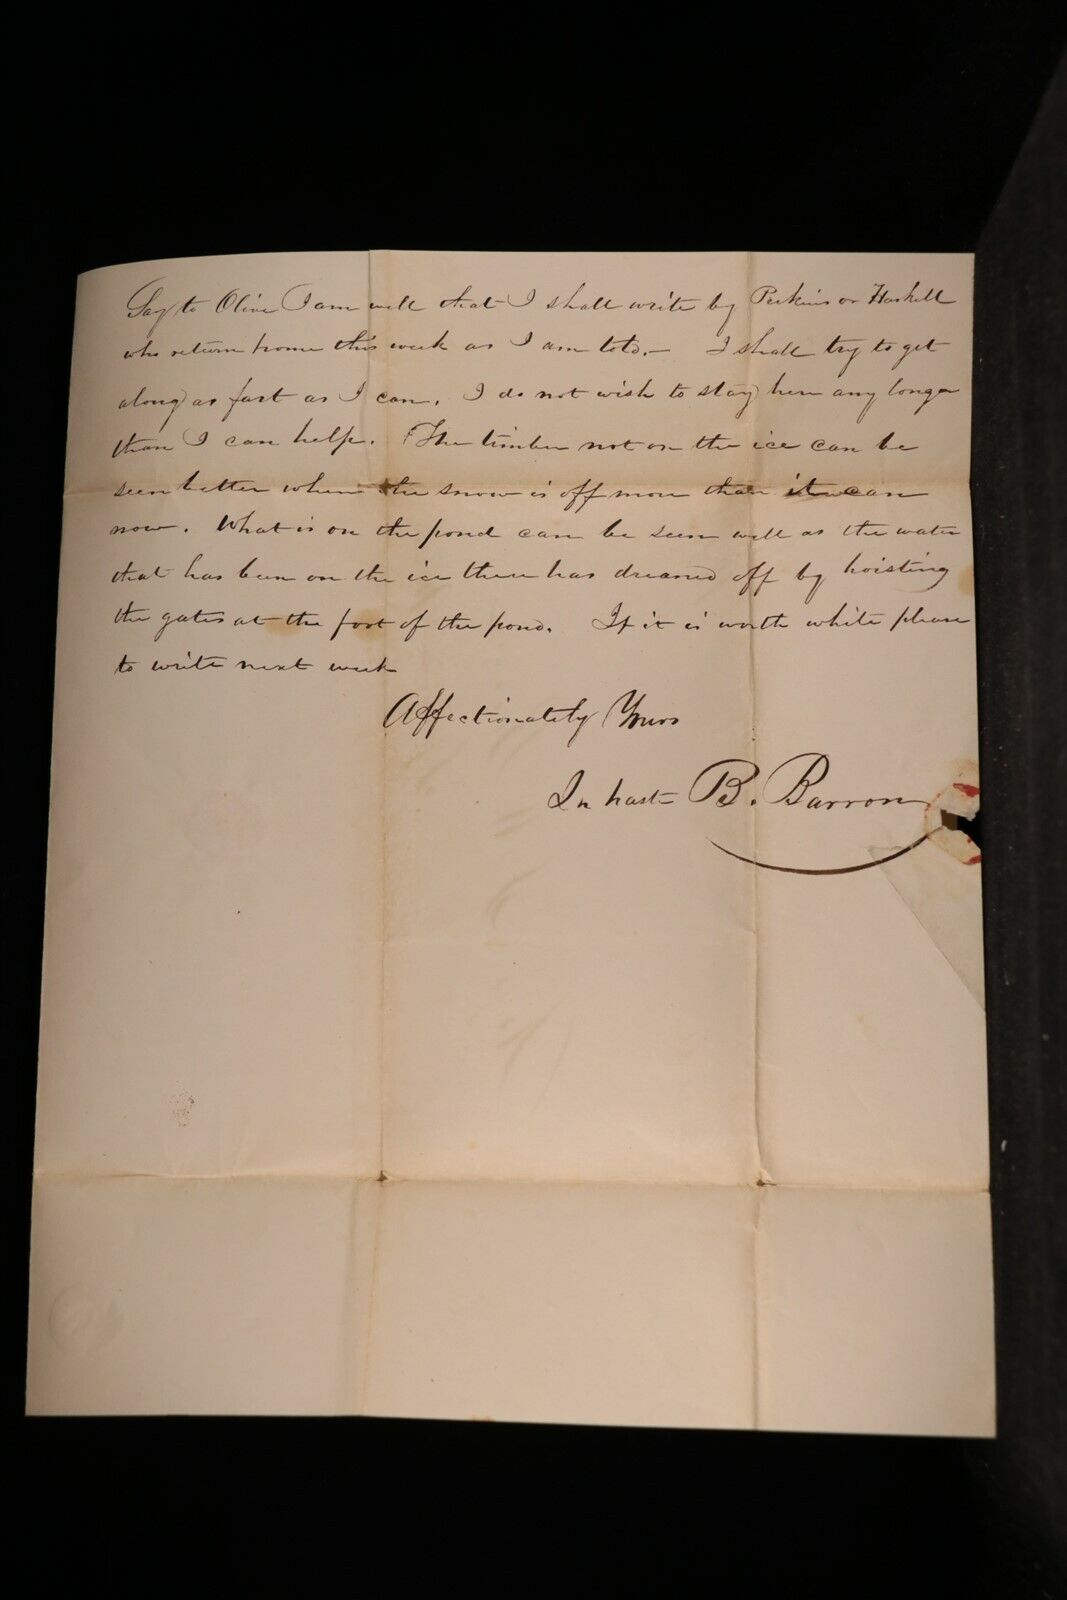 Say to Olive I am well that I shall write by Perkins or Haskell
who return home this week as I am told.— I shall try to get
along as fast as I can. I do not wish to stay here any longer
than I can help. The timber not on the ice can be
seen better when the snow is off more than it can
now. What is on the pond can be seen well as the water
that has been on the ice there has dreaned off by hoisting
the gates at the foot of the pond. If it is worth while please
to write next week
Affectionately Yours
In haste B. Barron